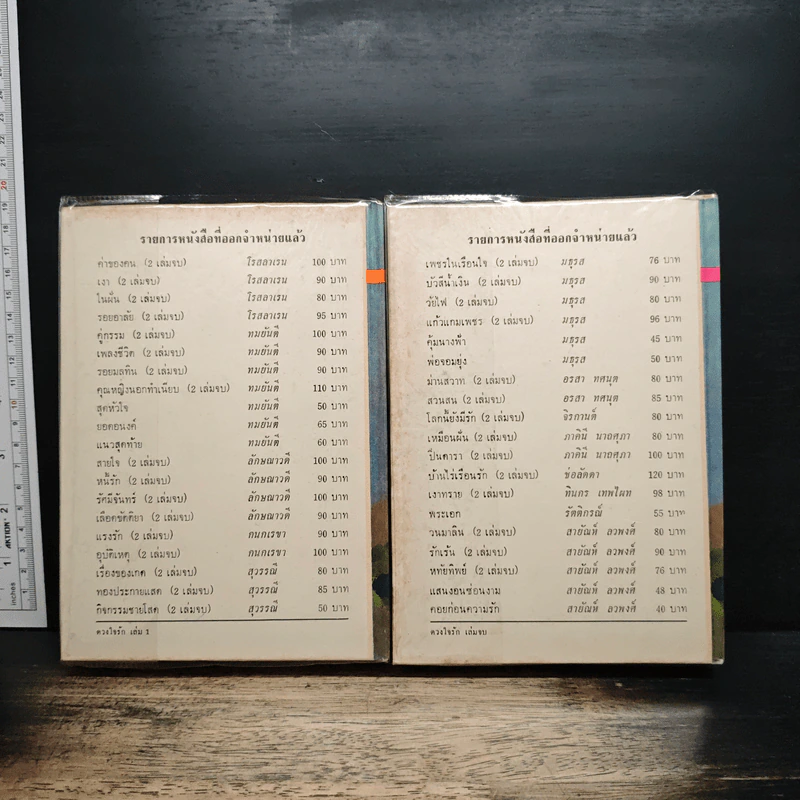 รายการหนังสือที่ออกจำหน่ายแล้ว
ค่าของคน (2 เล่มจบ) โรสลาเรน 100 บาท
เงา (2 เล่มจบ) โรสลาเรน 90 บาท
ในฝัน (2 เล่มจบ) โรสลาเรน 80 บาท
รอยอาลัย (2 เล่มจบ) โรสลาเรน 95 บาท
คู่กรรม (2 เล่มจบ) ทมยันตี 100 บาท
เพลงชีวิต (2 เล่มจบ) ทมยันตี 90 บาท
รอยมลทิน (2 เล่มจบ) ทมยันตี 90 บาท
คุณหญิงนอกทำเนียบ (2 เล่มจบ) ทมยันตี 110 บาท
สุดหัวใจ ทมยันตี 50 บาท
ยอดอนงค์ ทมยันตี 65 บาท
แนวสุดท้าย ทมยันตี 60 บาท
สายใจ (2 เล่มจบ) ลักษณาวดี 100 บาท
หนี้รัก (2 เล่มจบ) ลักษณาวดี 90 บาท
รัศมีจันทร์ (2 เล่มจบ) ลักษณาวดี 100 บาท
เลือดขัตติยา (2 เล่มจบ) ลักษณาวดี 90 บาท
แรงรัก (2 เล่มจบ) กนกเรขา 90 บาท
อุบัติเหตุ (2 เล่มจบ) กนกเรขา 100 บาท
เรื่องของเกด (2 เล่มจบ) สุวรรณี 80 บาท
ทองประกายแสด (2 เล่มจบ) สุวรรณี 85 บาท
กิจกรรมชายโสด (2 เล่มจบ) สุวรรณี 50 บาท
ดวงใจรัก เล่ม 1
รายการหนังสือที่ออกจำหน่ายแล้ว
เพชรในเรือนใจ (2 เล่มจบ) มธุรส 76 บาท
บัวสีน้ำเงิน (2 เล่มจบ) มธุรส 90 บาท
วัยไฟ (2 เล่มจบ) มธุรส 80 บาท
แก้วแกมเพชร (2 เล่มจบ) มธุรส 96 บาท
คุ้มนางฟ้า มธุรส 45 บาท
พ่อจอมยุ่ง มธุรส 50 บาท
ม่านสวาท (2 เล่มจบ) อรสา ทศนุต 80 บาท
สวนสน (2 เล่มจบ) อรสา ทศนุต 85 บาท
โลกนี้ยังมีรัก (2 เล่มจบ) จิรกานต์ 80 บาท
เหมือนฝัน (2 เล่มจบ) ภาคินี นาถศุภา 80 บาท
ปิ่นดารา (2 เล่มจบ) ภาคินี นาถศุภา 100 บาท
บ้านไร่เรือนรัก (2 เล่มจบ) ช่อลัดดา 120 บาท
เงาทราย (2 เล่มจบ) ทินกร เทพไผท 98 บาท
พระเอก รัตติกรณ์ 55 บาท
วนมาลิน (2 เล่มจบ) สายัณห์ ลวพงศ์ 80 บาท
รักเร้น (2 เล่มจบ) สายัณห์ ลวพงศ์ 90 บาท
หทัยทิพย์ (2 เล่มจบ) สายัณห์ ลวพงศ์ 76 บาท
แสนงอนซ่อนงาม สายัณห์ ลวพงศ์ 48 บาท
คอยก่อนความรัก สายัณห์ ลวพงศ์ 40 บาท
ดวงใจรัก เล่มจบ